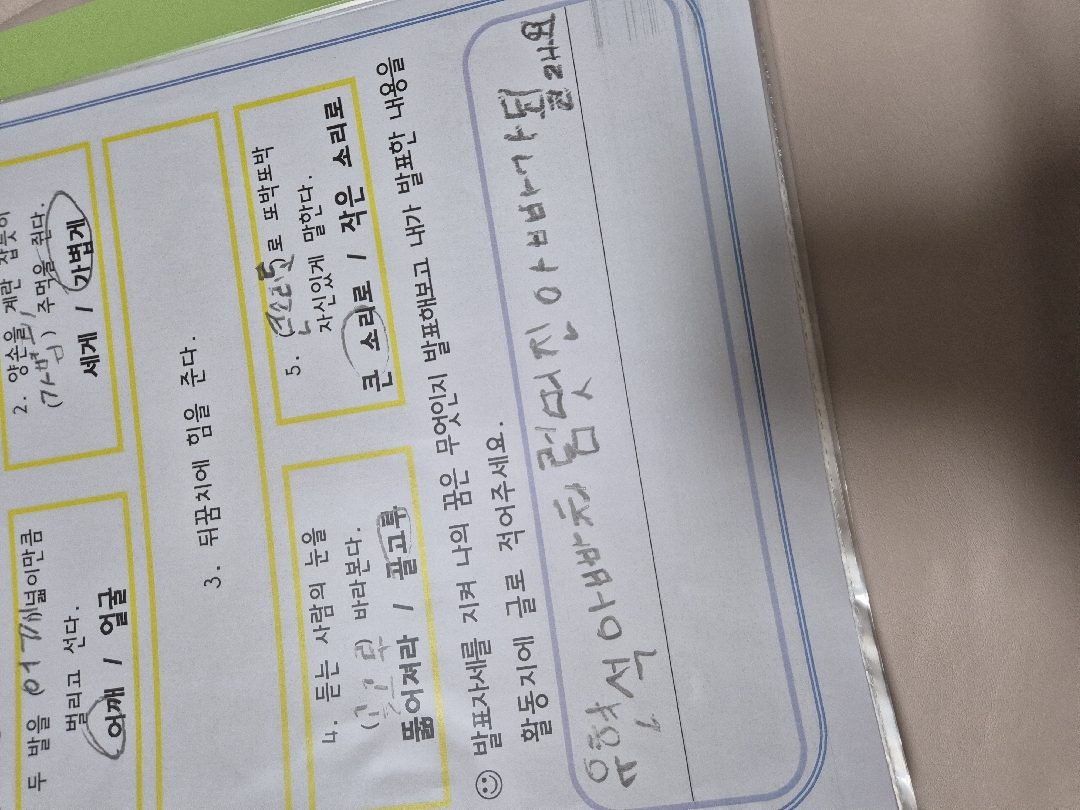 두 발을 어깨넓이만큼
벌리고 선다.
어깨 / 얼굴
2. 양손을 계란 잡듯이
(가볍게) 주먹을 쥔다.
세게 / 가볍게
3. 뒤꿈치에 힘을 준다.
4. 듣는 사람의 눈을
(골고루) 바라본다.
뚫어져라 / 골고루
5. (큰소리)로 또박또박
자신있게 말한다.
큰 소리로 / 작은 소리로
발표자세를 지켜 나의 꿈은 무엇인지 발표해보고 내가 발표한 내용을
활동지에 글로 적어주세요.
유현석 아빠처럼 멋진 아빠가 될